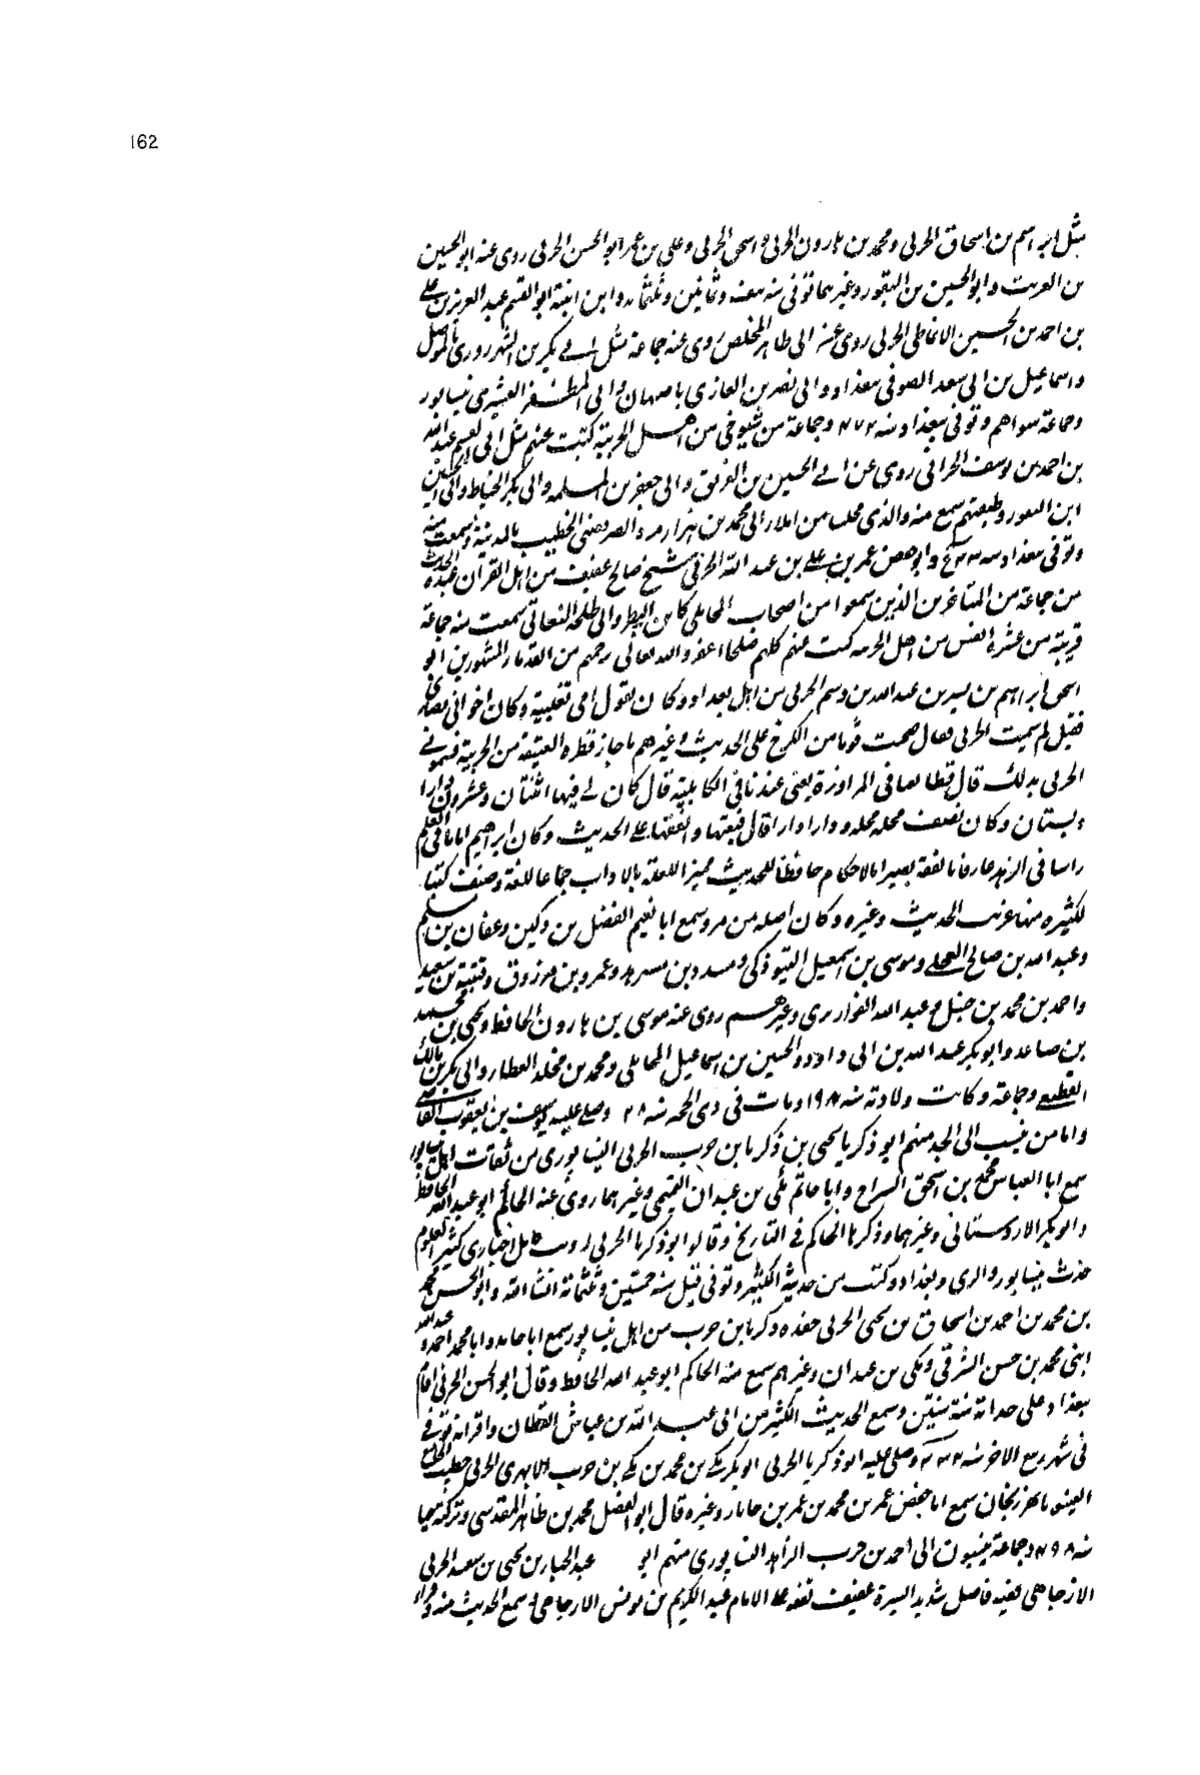 162
مثل ابراهيم بن اسحاق الحربى ومحمد بن هارون الحربى واسحق الحربى وعلى بن عمر ابو الحسن الحربى روى عنه ابو الحسين
بن وابو الحسين بن النقور وغيرهما توفى سنه وثمانين وثلثمائه وابن ابنته ابو القسم عبد العزيز بن على
بن احمد بن الحسين الانماطى الحربى روى عن ابى طاهر المخلص روى عنه جماعة مثل ابى بكر بن الشهرزورى بالموصل
واسماعيل بن ابى سعد الصوفى ببغداد وابى نصر بن الغازى باصبهان وابى المظفر القشيرى بنيسابور
وجماعة سواهم وتوفى ببغداد سنه وجماعة من شيوخى من اهل الحربية كتبت عنهم مثل ابى القسم عبد الله
بن احمد بن يوسف الحربى روى عن ابى الحسين بن وابى جعفر بن المسلمه وابى بكر الخياط وابى الحسين
ابن النقور وطبقتهم سمع منه والذى مجلسا من املاء ابى محمد بن هزارمرد الصريفينى الخطيب بالمدينة وسمعت منه
وتوفى ببغداد سنه وابو حفص عمر بن على بن عبد الله الحربى شيخ صالح عفيف من اهل القرآن عنده الحديث
من جماعة من المتاخرين الذين سمعوا من اصحاب المحاملى كابن البطر وابى طلحة النعالى سمعت منه جماعة
قريبة من عشرة انفس من اهل الحربيه كتبت عنهم كلهم صلحاء اعف والله تعالى رحمهم من القدماء المشهورين ابو
اسحق ابراهيم بن بشير بن عبد الله بن ديسم الحربى من اهل بغداد وكان يقول امى تغلبية وكان اخوانى نصارى
فقيل لم سميت الحربى فقال صحبت قوما من الكرخ على الحديث وغيرهم ما جاز قطره العتيقة من الحربية فسمونى
الحربى بذلك قال قطايعنا فى المراوزة يعنى عندنا فى الكابلية قال كان لى فيها اثنتان وعشرون دارا
وبستان وكان نصف محله ودارا دارا قال فبعتها وانفقتها على الحديث وكان ابراهيم اماما فى العلم
راسا فى الزهد عارفا بالفقه بصيرا بالاحكام حافظا للحديث مميزا بالاداب جماعا للغة وصنف كتبا
كثيره منها غريب الحديث وغيره وكان اصله من مرو سمع ابا نعيم الفضل بن دكين وعفان بن مسلم
وعبد الله بن صالح العجلى وموسى بن اسمعيل التبوذكى ومسدد بن مسرهد وعمرو بن مرزوق وقتيبة بن سعيد
واحمد بن محمد بن حنبل وعبيد الله القواريرى وغيرهم روى عنه موسى بن هارون الحافظ ويحيى بن محمد
بن صاعد وابو بكر عبد الله بن ابى داود والحسين بن اسماعيل المحاملى ومحمد بن مخلد العطار وابى بكر بن مالك
القطيعى وجماعة وكانت ولادته سنه ١٩٨ ومات فى ذى الحجه سنه وصلى عليه يوسف بن يعقوب القاضى
واما من ينسب الى الجد منهم ابو زكريا يحيى بن زكريا بن حرب الحربى النيسابورى من ثقات اهل نيسابور
سمع ابا العباس محمد بن اسحق السراج وابا حاتم مكى بن عبدان التميمى وغيرهما روى عنه الحاكم ابو عبد الله الحافظ
وابو بكر الاردستانى وغيرهما وذكره الحاكم فى التاريخ وقال ابو زكريا الحربى اديب اخبارى كثير العلوم
حدث بنيسابور والرى وبغداد وكتب من حديثه الكثير وتوفى قبل سنه خمسين وثلثمائة انشاء الله وابو الحسن محمد
بن محمد بن احمد بن اسحاق بن يحيى الحربى حفده زكريا بن حرب من اهل نيسابور سمع ابا حامد وابا محمد احمد وعبد الله
ابنى محمد بن حسن الشرقى ومكى بن عبدان وغيرهم سمع منه الحاكم ابو عبد الله الحافظ وقال ابو الحسن الحربى اقام
ببغداد على حداثة سنه سنتين وسمع الحديث الكثير من ابى عبد الله بن عياش القطان واقرانه توفى
فى شهر ربيع الاخر سنه وصلى عليه ابو زكريا الحربى ابو بكر مكى بن محمد بن مكى بن حرب الابهرى الحربى خطيب الجامع
العتيق بابهر زنجان سمع ابا حفص عمر بن محمد بن عمر بن وغيره قال ابو الفضل محمد بن طاهر المقدسى وتركته حيا
سنه وجماعة ينسبون الى احمد بن حرب الزاهد النيسابورى منهم ابو عبد الجبار بن يحيى بن سعيد الحربى
الازجاهى فقيه فاضل شديد السيرة عفيف تفقه على الامام عبد الكريم بن يونس الازجاهى وسمع الحديث منه